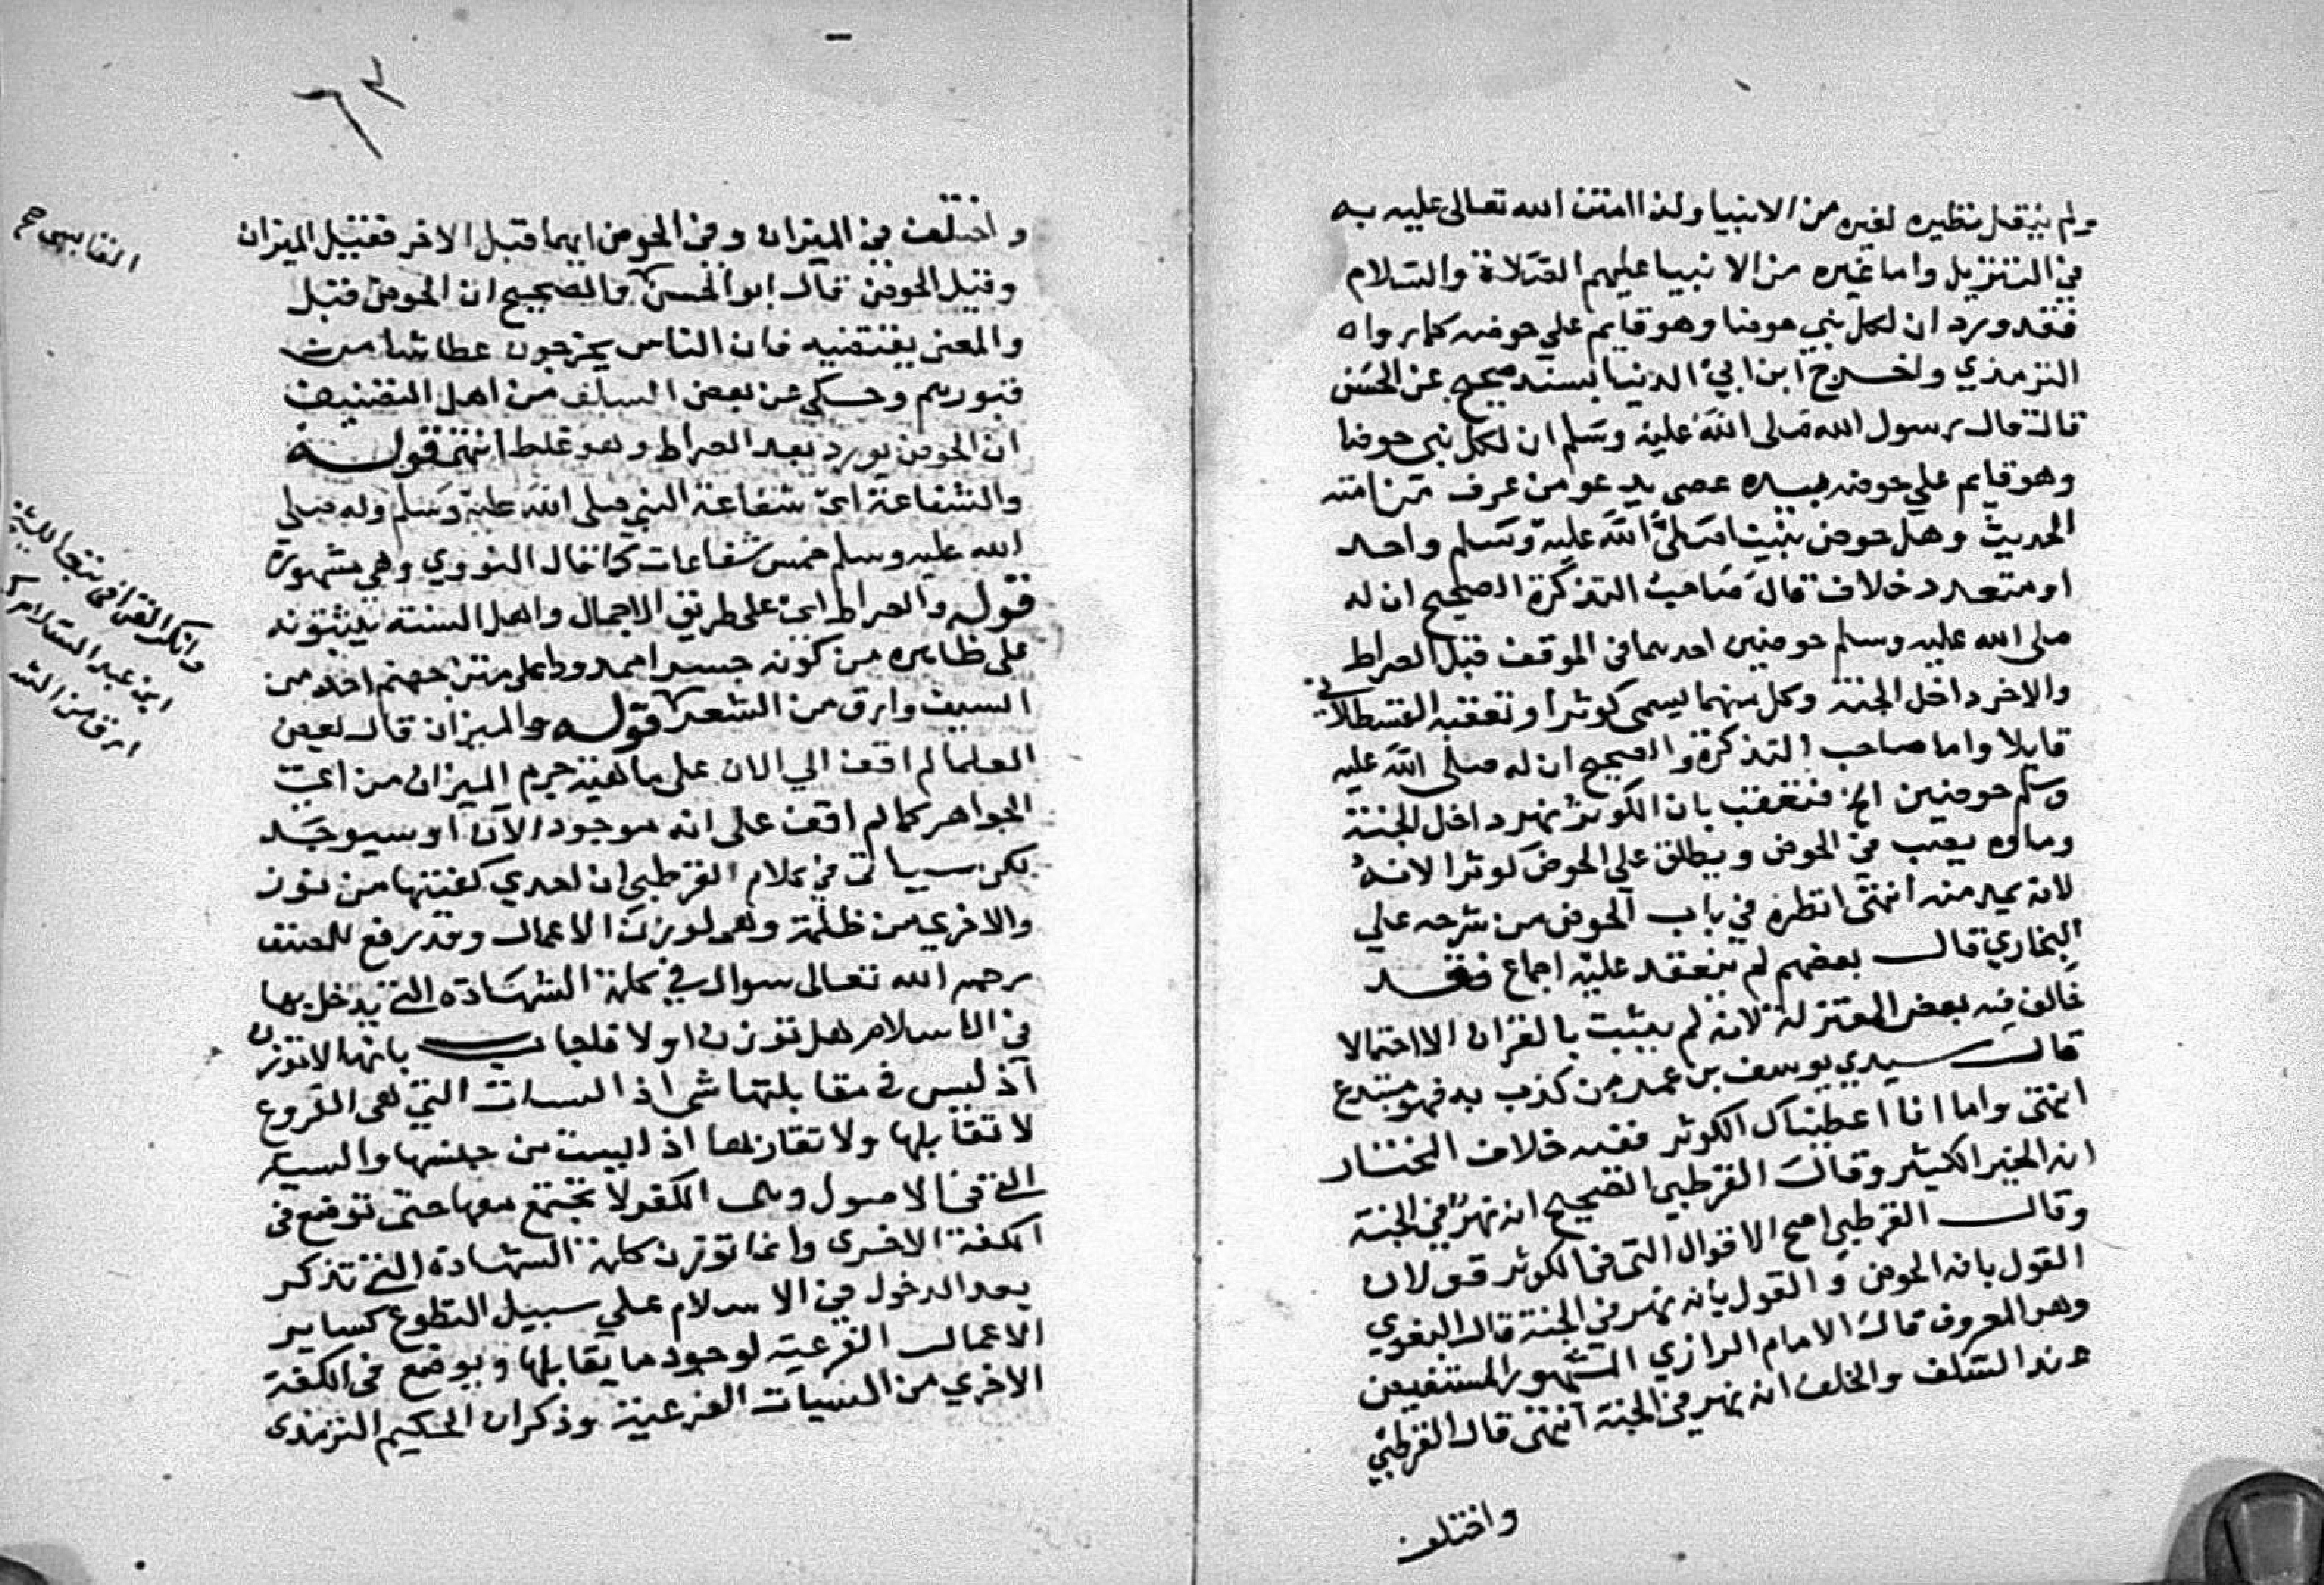 ولم ينقل نظيره لغيره من الانبيا ولذا امتن الله تعالى عليه به
في التنزيل واما غيره من الانبيا عليهم الصلاة والسلام
فقد ورد ان لكل نبي حوضا وهو قايم علي حوضه كما رواه
الترمذي واخرج ابن ابي الدنيا بسند صحيح عن الحسن
قال قال رسول الله صلى الله عليه وسلم ان لكل نبي حوضا
وهو قايم علي حوضه بيده عصى يدعو من عرف من امته
الحديث وهل حوض نبينا صلى الله عليه وسلم واحد
او متعدد خلاف قال صاحب التذكرة الصحيح ان له
صلى الله عليه وسلم حوضين احدهما في الموقف قبل الصراط
والاخر داخل الجنة وكل منهما يسمى كوثرا وتعقبه القسطلاني
قايلا واما صاحب التذكرة والصحيح ان له صلى الله عليه
وسلم حوضين الخ فتعقب بان الكوثر نهر داخل الجنة
وماوه يصب في الحوض ويطلق على الحوض كوثرا لانه
لانه يمد منه انتهى انظره في باب الحوض من شرحه علي
البخاري قال بعضهم لم ينعقد عليه اجماع فقد
خالف فيه بعض المعتزلة لانه لم يثبت بالقران الا احتمالا
قال سيدي يوسف بن عمر من كذب به فهو مبتدع
انتهى واما انا اعطيناك الكوثر ففيه خلاف المختار
انه الخير الكثير وقال القرطبي الصحيح انه نهر في الجنة
وقال القرطبي اصح الاقوال التي في الكوثر قولان
القول بانه الحوض والقول بانه نهر في الجنة قال البغوي
وهو المعروف قال الامام الرازي المشهور المستفيض
عند السلف والخلف انه نهر في الجنة انتهى قال القرطبي
واختلف
٦٣
واختلف في الميزان وفي الحوض ايهما قبل الاخر فقيل الميزان
وقيل الحوض قال ابو الحسن والصحيح ان الحوض قبل
والمعنى يقتضيه فان الناس يخرجون عطاشا من
قبورهم وحكي عن بعض السلف من اهل التصنيف
ان الحوض يورد بعد الصراط وهو غلط انتهى قوله
والشفاعة اي شفاعة النبي صلى الله عليه وسلم وله صلى
الله عليه وسلم خمس شفاعات كما قال النووي وهي مشهورة
قوله والصراط اي على طريق الاجمال واهل السنة يثبتونه
على ظاهره من كونه جسرا ممدودا على متن جهنم احد من
السيف وارق من الشعر قوله والميزان قال بعض
العلما لم اقف الي الان على ماهية جرم الميزان من اي
الجواهر كما لم اقف على انه موجود الان او سيوجد
لكن سياتي في كلام القرطبي ان احدي كفتيها من نور
والاخري من ظلمة وهي لوزن الاعمال وقد رفع للمصنف
رحمه الله تعالى سوال في كلمة الشهادة التي يدخل بها
في الاسلام هل توزن او لا فاجاب بانها لا توزن
اذ ليس في مقابلتها شي اذ السيات التي هي الفروع
لا تقابلها ولا تقارنها اذ ليست من جنسها والسيه
التي في الاصول وهي الكفر لا تجتمع معها حتى توضع في
الكفة الاخرى وانما توزن كلمة الشهادة التي تذكر
بعد الدخول في الاسلام علي سبيل التطوع كساير
الاعمال الفرعية لوجود ما يقابلها ويوضع في الكفة
الاخري من السيات الفرعية وذكر ان الحكيم الترمذي
القابسي صح
وانكر القرافي تبعا للشيخ
ابن عبد السلام
ارق من الشعر